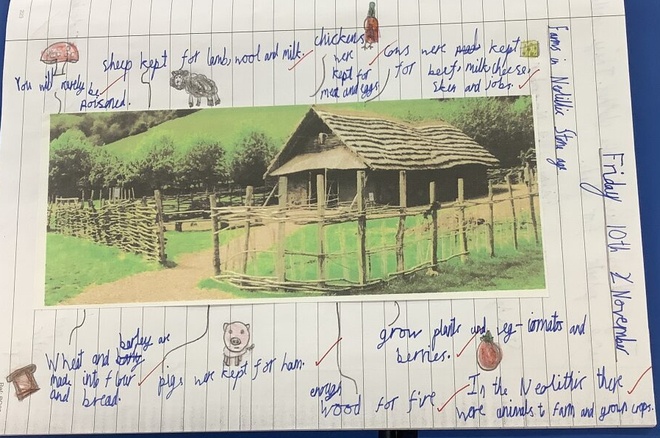 Friday 10th November
Farms in Neolithic Stone age
You will rarely be
poisoned.
sheep kept for lamb, wool and milk.
chickens
were
kept for
meat and eggs.
Cows were kept
for beef, milk, cheese,
skin and jobs.
Wheat and barleye are
made into flour
and bread.
pigs were kept for ham.
enough
wood for fire
grow plants and veg-tomato and
berries.
In the Neolithic there
were animals t farm and grown crops.